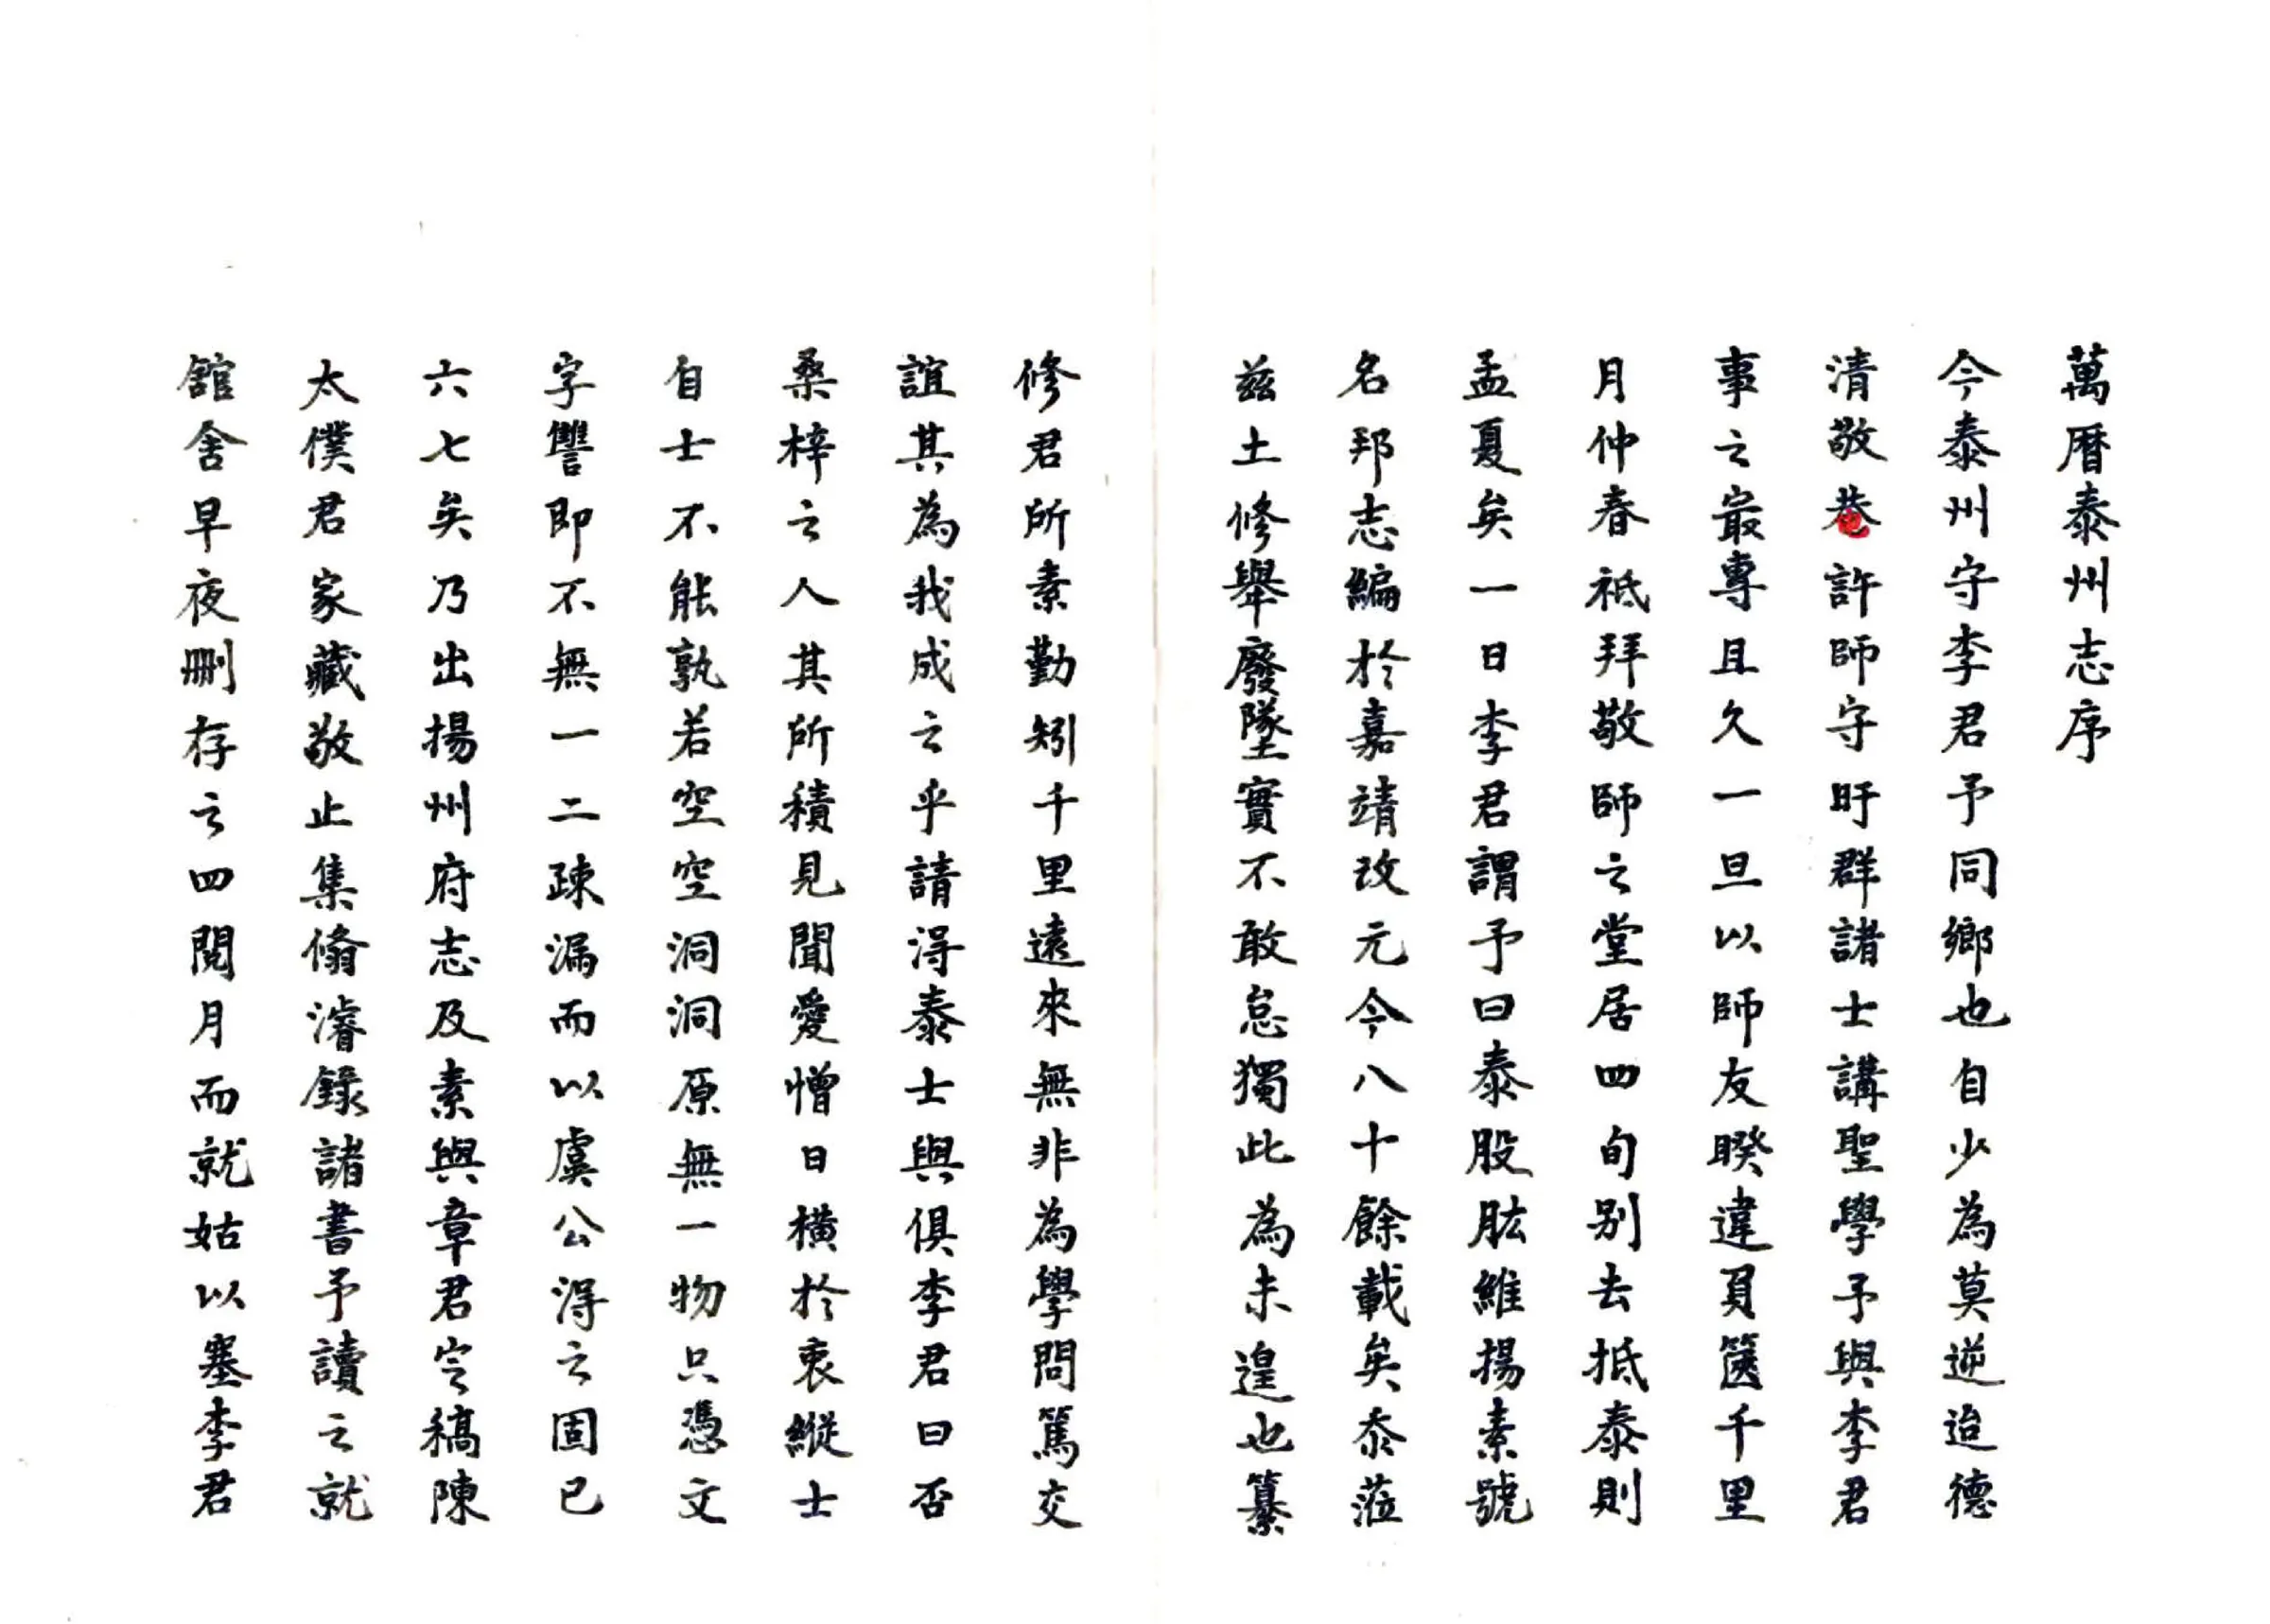 萬曆泰州志序
今泰州守李君予同鄉也自少為莫逆迨德
清敬菴許師守盱群諸士講聖學予與李君
事之最專且久一旦以師友睽違負篋千里
月仲春祗拜敬師之堂居四旬别去抵泰則
孟夏矣一日李君謂予曰泰股肱維揚素號
名邦志編於嘉靖改元今八十餘載矣忝蒞
茲土修舉廢墜實不敢怠獨此為未遑也纂
修君所素勤矧千里遠來無非為學問篤交
誼其為我成之乎請得泰士與俱李君曰否
桑梓之人其所積見聞愛憎日橫於衷縱士
自士不能孰若空空洞洞原無一物只憑文
字讐即不無一二疎漏而以虞公得之固已
六七矣乃出揚州府志及素與章君定稿陳
太僕君家藏敬止集脩濬錄諸書予讀之就
舘舍早夜删存之四閱月而就姑以塞李君